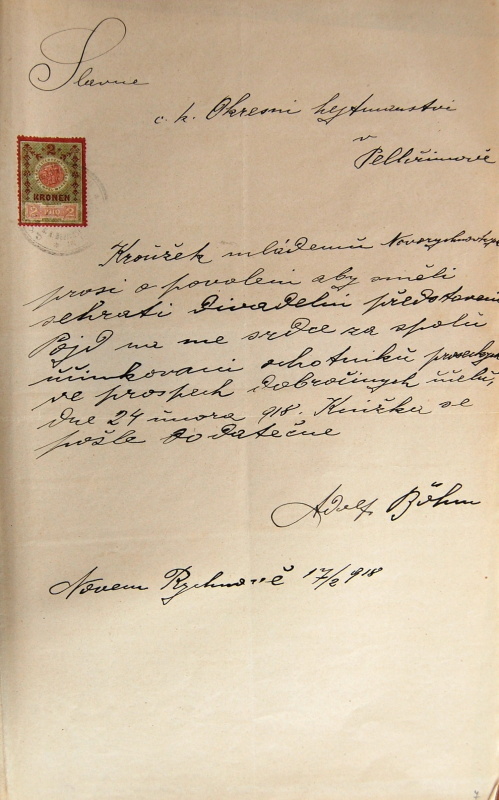 Slavné
c. k. Okresní hejtmanství
v
Pelhřimově
2
KRONEN
Kroužek mládemů
prosi o povolení aby směli
sehrati divadelní představení
Pojd na me srdce za spolu
učinkovani ochotniků
ve prospech dobročiných učelů
dne 24 února 918. Knižka se
pošle dodatečne
Adolf Böhm
Novem Rychnově 17/2 918
7